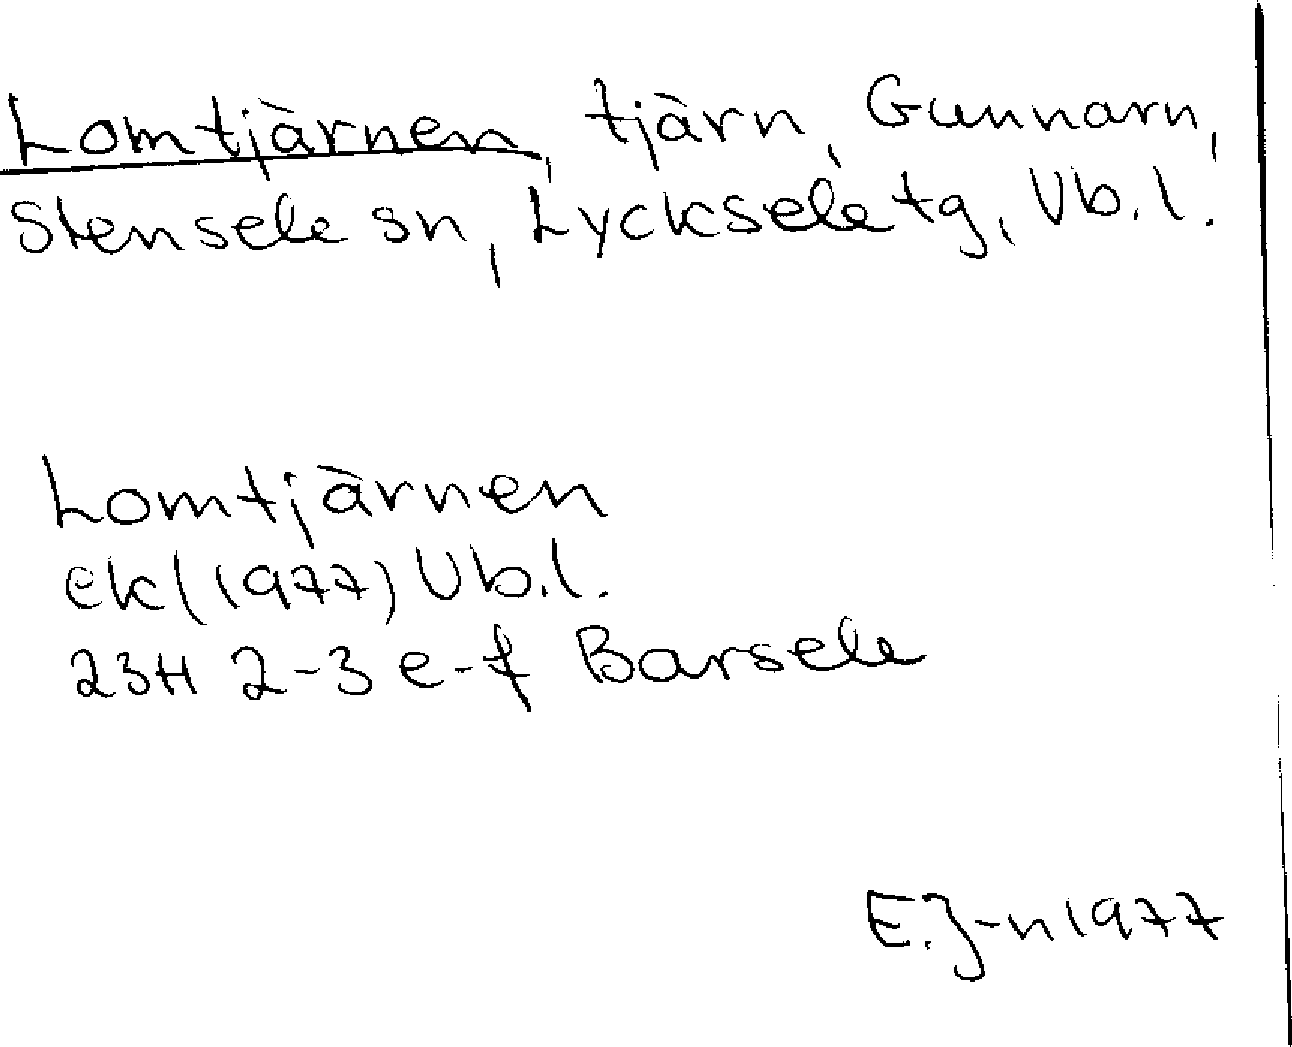 Lomtjärnen, tjärn, Gunnarn,
Stensele sn, Lycksele tg, Vb.l.
Lomtjärnen
ek (1977) Vb.l.
23H 2-3 e-f Barsele
E.J-n 1977